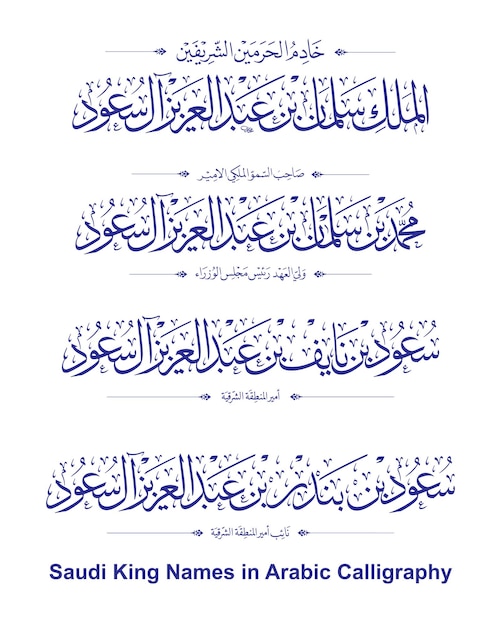 خَادِمُ الحَرَمَيْن الشَّرِيْفَيْن
المَلِكِ سَلمَان بْن عَبْدالعَزِيز آل سُعُود
صَاحِب السُّموّ المَلَكِي الامِيْر
مُحَمَّد بْن سَلمَان بْن عَبْدالعَزِيز آل سُعُود
وَلِيّ العَهْد رَئِيْس مَجْلِس الوُزَرَاء
سُعُود بن نَايِف بْن عَبْدالعَزِيز آل سُعُود
أمير المنطِقَة الشرقِيَة
سُعُود بْن بَنْدَرْ بْن عَبْدالعَزِيز آل سُعُود
نَائِب أمير المنطِقَة الشرقِيَة
Saudi King Names in Arabic Calligraphy